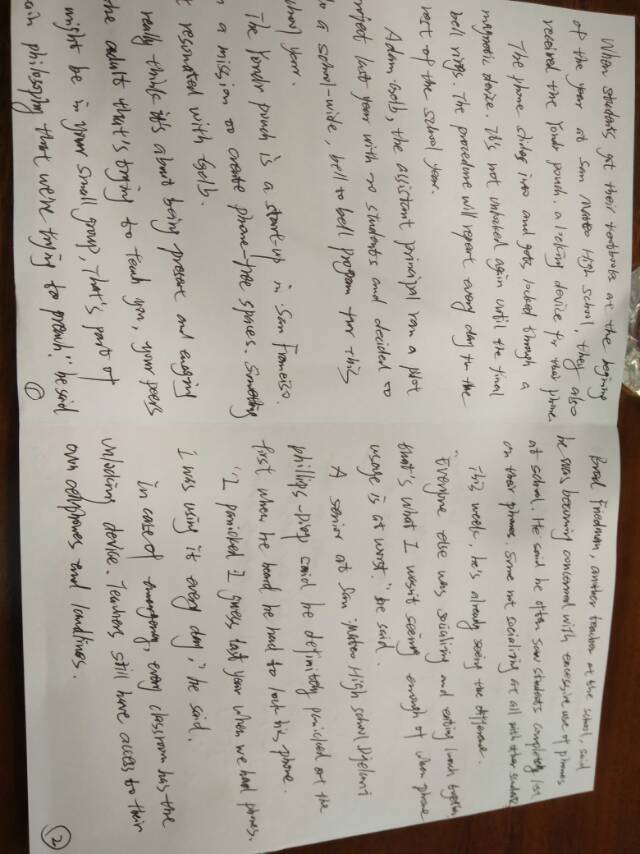 When students get their textbooks at the begining
of the year at San Mateo High School, they also
received the Yondr pouch. a locking device for their phone
The phone slides into and gets locked through a
magnetic device. It's not unlocked again until the final
bell rings. The procedure will repeat every day for the
rest of the school year.
Adam Gelb, the assistant principal ran a pilot
project last year with 20 students and decided to
do a school-wide, bell to bell program for this
school year.
The Yondr pouch is a start-up in San Francisco.
a mission to create phone-free spaces. Something
resonated with Gelb.
really think it's about being present and engaging
the adult that's trying to teach you, your peers
might be in your small group, That's part of
philosophy that we're trying to preach." he said
①
Brad Friedman, another teacher at the school, said
he was becoming concerned with excessive use of phones
at school. He said he often saw students completely lost
on their phones. Some not socializing at all with other students
This week, he's already seeing the difference.
"Everyone else was socializing and eating lunch together,
that's what I wasn't seeing enough of when phone
usage is at worst." he said.
A senior at San Mateo High School Djelani
phillips-Diop said he definitely panicked at the
first when he heard he had to lock his phone.
"I panicked I guess last year when we had phones.
I was using it every day," he said.
in case of emergency, every classroom has the
unlocking device. Teachers still have access to their
own cellphones and landlines.
②